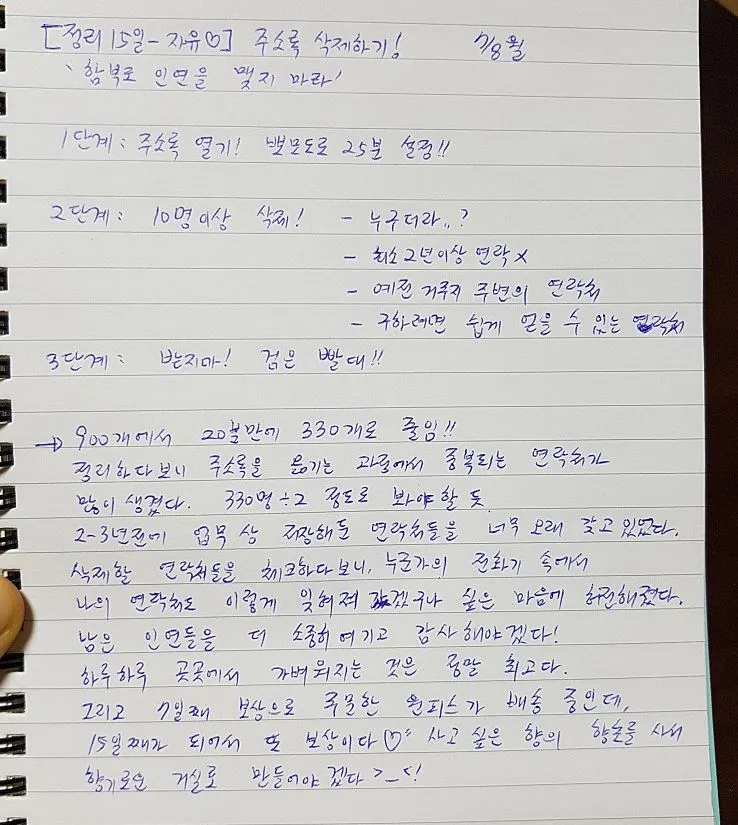 [정리 15일 - 자유♡] 주소록 삭제하기! 7/8 월
`함부로 인연을 맺지 마라'
1단계: 주소록 열기! 뽀모도로 25분 설정!!
2단계: 10명 이상 삭제! - 누구더라..?
- 최소 2년이상 연락 x
- 예전 거주지 주변의 연락처
- 구하려면 쉽게 얻을 수 있는 연락처
3단계: 받지마! 검은 빨대!!
→ 900개에서 20분만에 330개로 줄임!!
정리하다보니 주소록을 옮기는 과정에서 중복되는 연락처가
많이 생겼다. 330명÷2 정도로 봐야할 듯
2-3년전에 업무 상 저장해둔 연락처들을 너무 오래 갖고 있었다.
삭제할 연락처들을 체크하다보니, 누군가의 전화기 속에서
나의 연락처도 이렇게 잊혀져 갔겠구나 싶은 마음에 허전해졌다.
남은 인연들을 더 소중히 여기고 감사해야겠다!
하루하루 곳곳에서 가벼워지는 것은 정말 최고다.
그리고 7일째 보상으로 주문한 원피스가 배송 중인데,
15일째가 되어서 또 보상이다♡ 사고 싶은 향의 향초를 사서
향기로운 거실로 만들어야겠다 >_<!